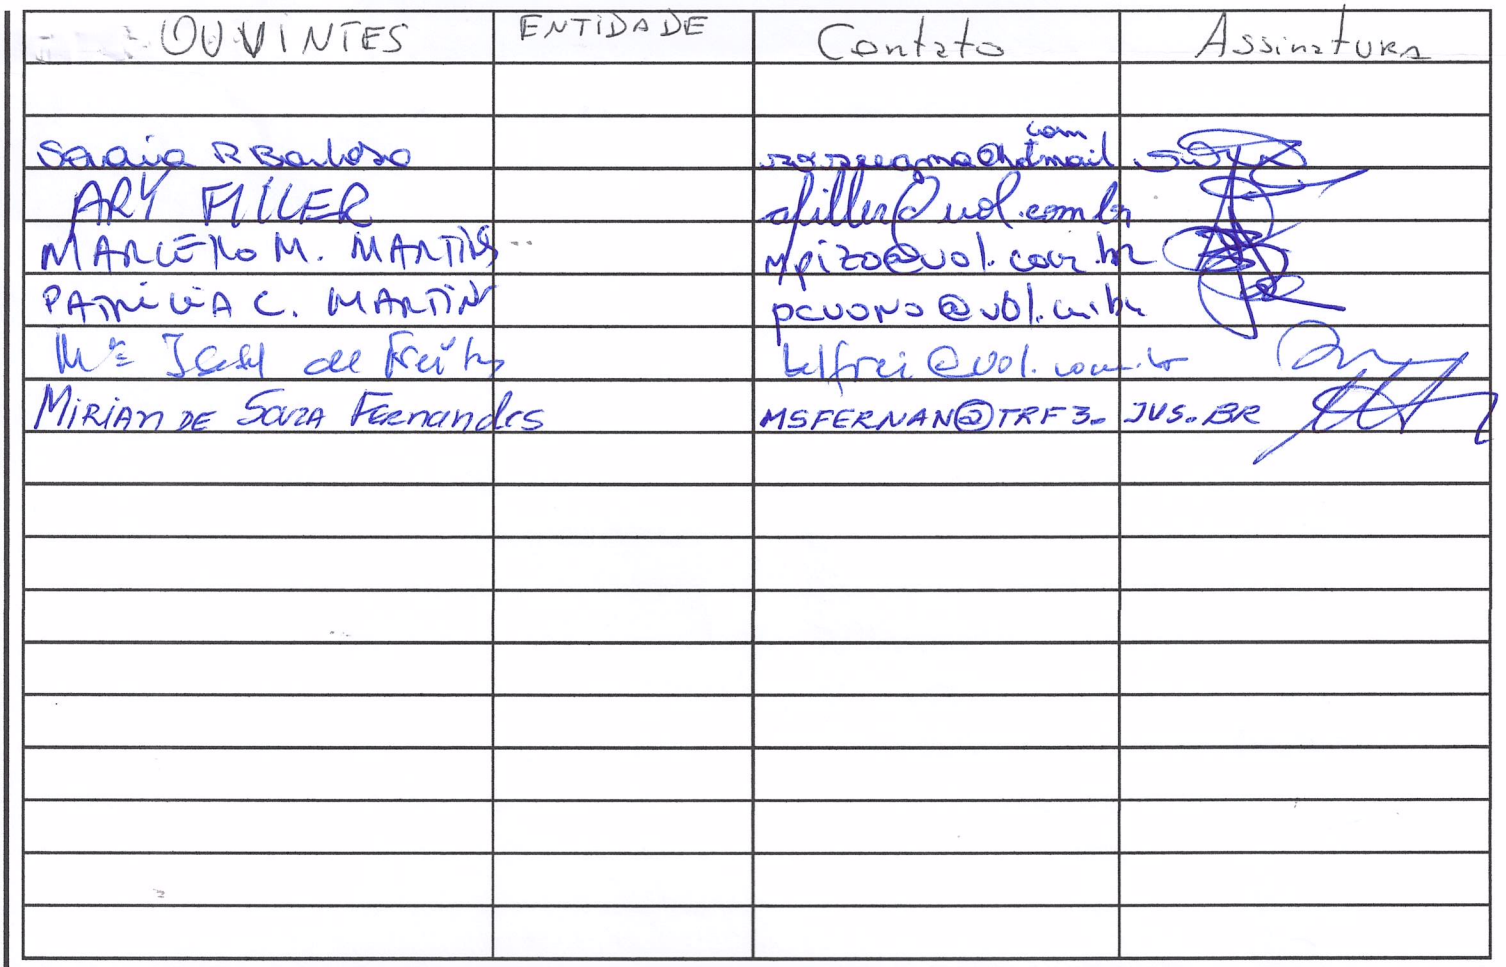 OUVINTES ENTIDADE Contato Assinatura
R Barbosa @hotmail.com
ARY FILLER afiller@uol.com.br
MARCELO M. MARTINS mpizo@uol.com.br
PATRICIA C. MARTINS pcuono@uol.com.br
Mª Isabel de Freitas belfrei@uol.com.br
MIRIAN DE SOUZA FERNANDES MSFERNAN@TRF3.JUS.BR